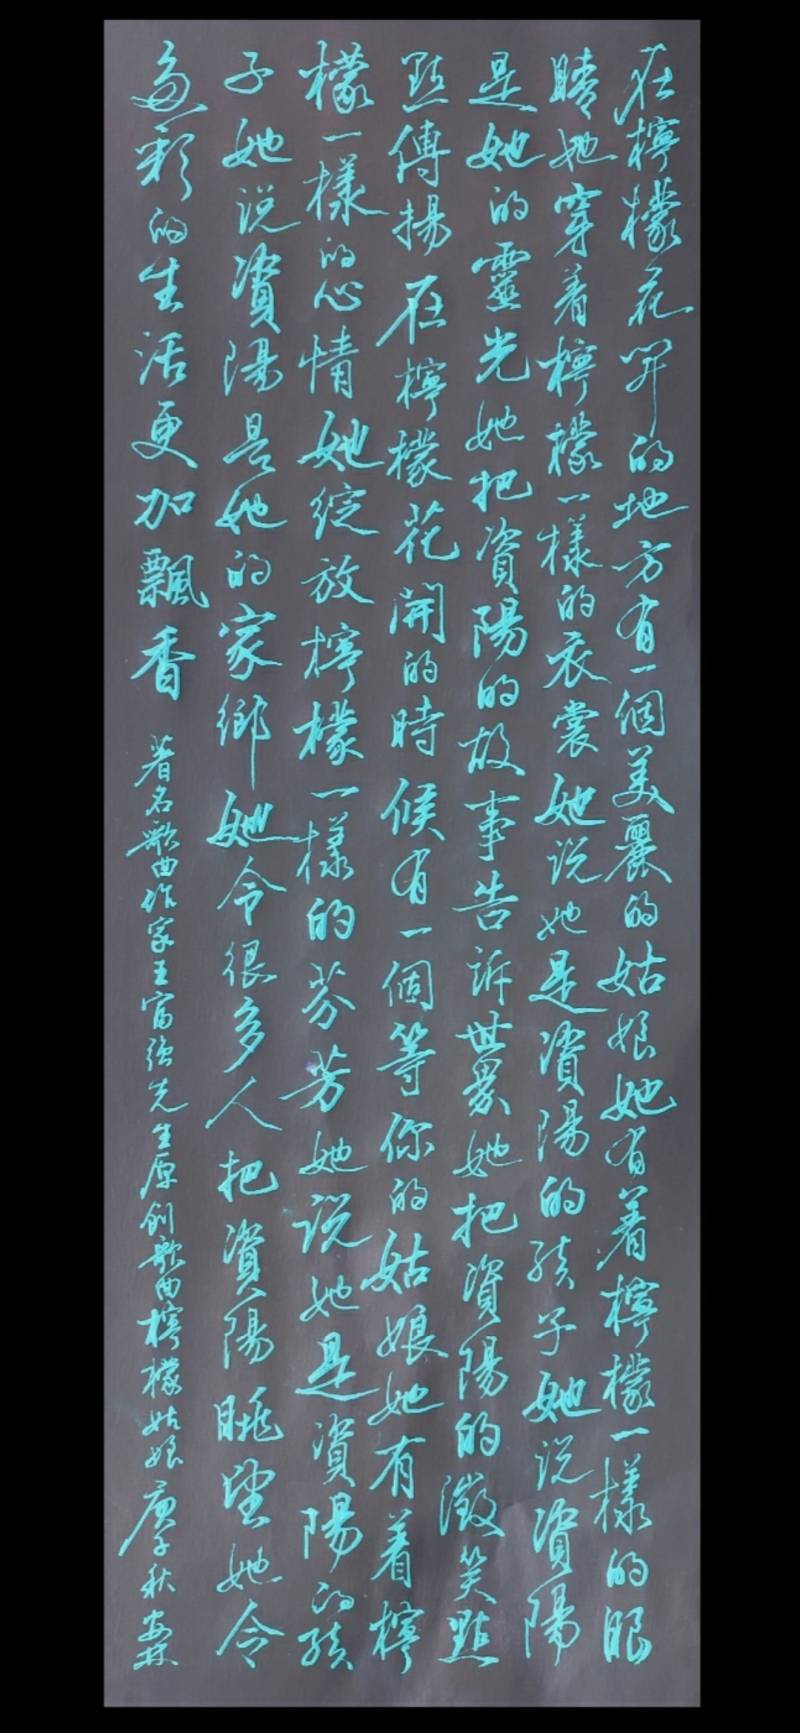 在檸檬花開的地方有一個美麗的姑娘她有着檸檬一樣的眼
睛她穿着檸檬一樣的衣裳她说她是資陽的孩子她说資陽
是她的靈光她把資陽的故事告訴世界她把資陽的微笑點
點傳揚在檸檬花開的時候有一個等你的姑娘她有着檸
檬一樣的心情她綻放檸檬一樣的芬芳她说她是資陽的孩
子她说資陽是她的家鄉她令很多人把資陽眺望她令
多彩的生活更加飄香
著名歌曲作家王富强先生原创歌曲檸檬姑娘庚子秋